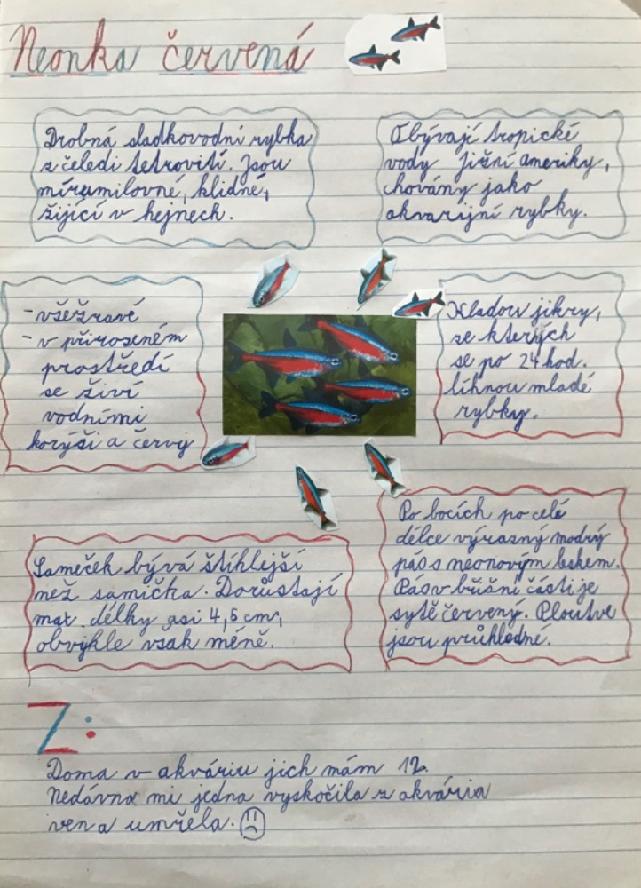 Neonka červená
Drobná sladkovodní rybka
z čeledi tetrovití. Jsou
mírumilovné, klidné,
žijící v hejnech.
Obývají tropické
vody Jižní ameriky,
chovány jako
akvarijní rybky.
-všežravé
-v přirozeném
prostředí
se živí
vodními
korýši a červy
Kladou jikry,
ze kterých
se po 24 hod.
líhnou mladé
rybky.
Sameček bývá štíhlejší
než samička. Dorůstají
max. délky asi 4,5 cm,
obvykle však méně.
Po bocích po celé
délce výrazný modrý
pás s neonovým leskem.
Pás v břišní části je
sytě červený. Ploutve
jsou průhledné.
Z:
Doma v akváriu jich mám 12.
Nedávno mi jedna vyskočila z akvária
ven a umřela.